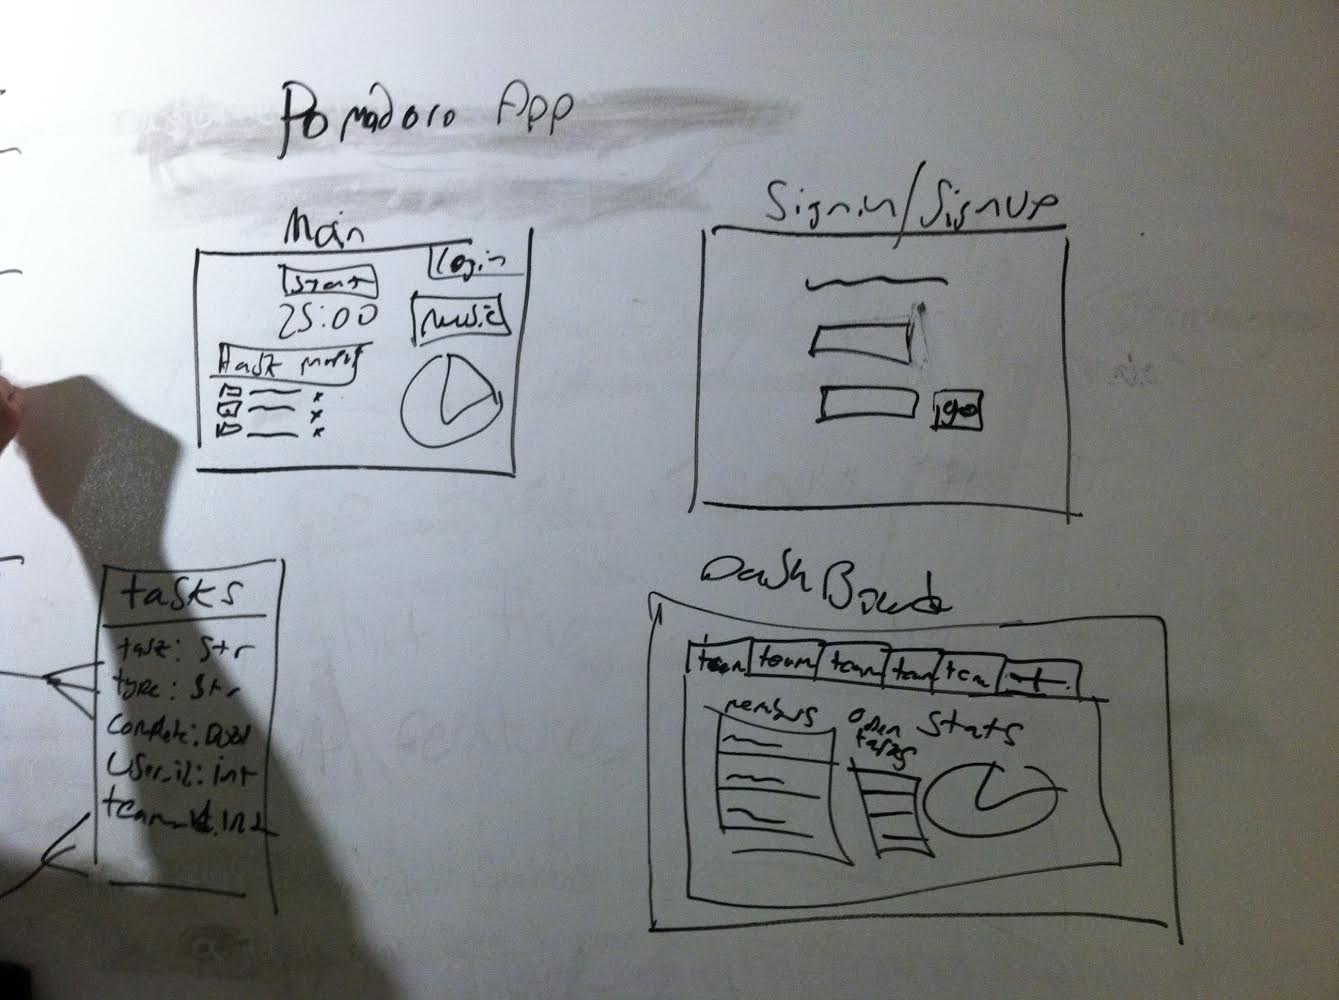 Pomadoro App
Main
Login
Start
25:00
music
Signin/Signup
go
tasks
task: Str
type: Str
Complete: Bool
User_id: int
team_id: int
DashBoard
team team team team team +
members
open
tasks
Stats